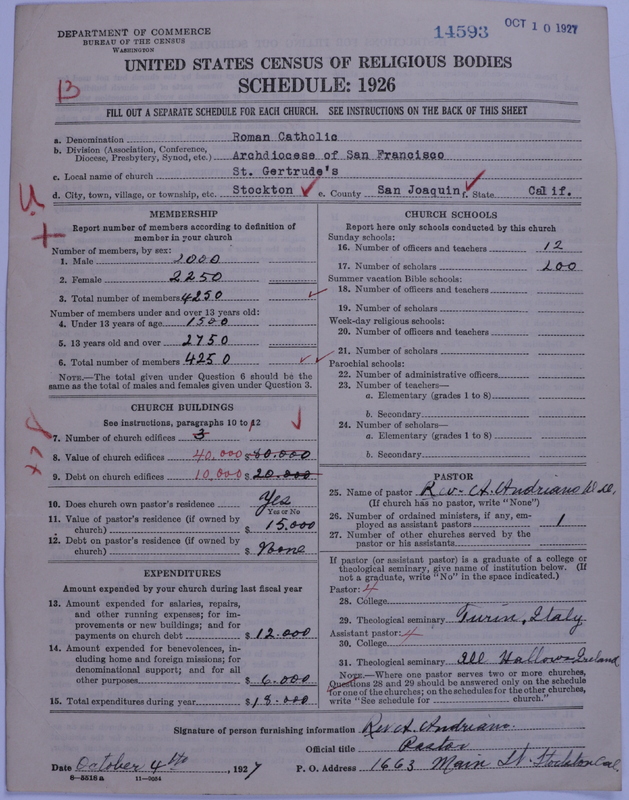 DEPARTMENT OF COMMERCE
BUREAU OF THE CENSUS
WASHINGTON
14593
OCT 10 1927
UNITED STATES CENSUS OF RELIGIOUS BODIES
SCHEDULE: 1926
13
FILL OUT A SEPARATE SCHEDULE FOR EACH CHURCH. SEE INSTRUCTIONS ON THE BACK OF THIS SHEET
a. Denomination Roman Catholic
b. Division (Association, Conference, Diocese, Presbytery, Synod, etc.) Archdiocese of San Francisco
c. Local name of church St. Gertrude's
d. City, town, village, or township, etc. Stockton e. County San Joaquin f. State Calif.
MEMBERSHIP
Report number of members according to definition of
member in your church
Number of members, by sex:
1. Male 2000
2. Female 2250
3. Total number of members 4250
Number of members under and over 13 years old:
4. Under 13 years of age 1500
5. 13 years old and over 2750
6. Total number of members 4250
NOTE.—The total given under Question 6 should be the
same as the total of males and females given under Question 3.
CHURCH BUILDINGS
See instructions, paragraphs 10 to 12
7. Number of church edifices 3
8. Value of church edifices 40,000 $ 60.000
9. Debt on church edifices 10,000 $ 20.000
10. Does church own pastor's residence Yes
Yes or No
11. Value of pastor's residence (if owned by
church) $ 15.000
12. Debt on pastor's residence (if owned by
church) $ None
EXPENDITURES
Amount expended by your church during last fiscal year
13. Amount expended for salaries, repairs,
and other running expenses; for im-
provements or new buildings; and for
payments on church debt $ 12.000
14. Amount expended for benevolences, in-
cluding home and foreign missions; for
denominational support; and for all
other purposes $ 6.000
15. Total expenditures during year $ 18.000
CHURCH SCHOOLS
Report here only schools conducted by this church
Sunday schools:
16. Number of officers and teachers 12
17. Number of scholars 200
Summer vacation Bible schools:
18. Number of officers and teachers
19. Number of scholars
Week-day religious schools:
20. Number of officers and teachers
21. Number of scholars
Parochial schools:
22. Number of administrative officers
23. Number of teachers—
a. Elementary (grades 1 to 8)
b. Secondary
24. Number of scholars—
a. Elementary (grades 1 to 8)
b. Secondary
PASTOR
25. Name of pastor Rev. A. Andriano
(If church has no pastor, write "None")
26. Number of ordained ministers, if any, em-
ployed as assistant pastors 1
27. Number of other churches served by the
pastor or his assistants
If pastor (or assistant pastor) is a graduate of a college or
theological seminary, give name of institution below. (If
not a graduate, write "No" in the space indicated.)
Pastor: 4
28. College
29. Theological seminary Turin, Italy
Assistant pastor: 4
30. College
31. Theological seminary All Hallows Ireland
NOTE.—Where one pastor serves two or more churches,
Questions 28 and 29 should be answered only on the schedule
for one of the churches; on the schedules for the other churches,
write "See schedule for church."
Signature of person furnishing information Rev A. Andriano
Official title Pastor
Date October 4th, 1927 P. O. Address 1663 Main St. Stockton Cal.
8—5516a 11—9034